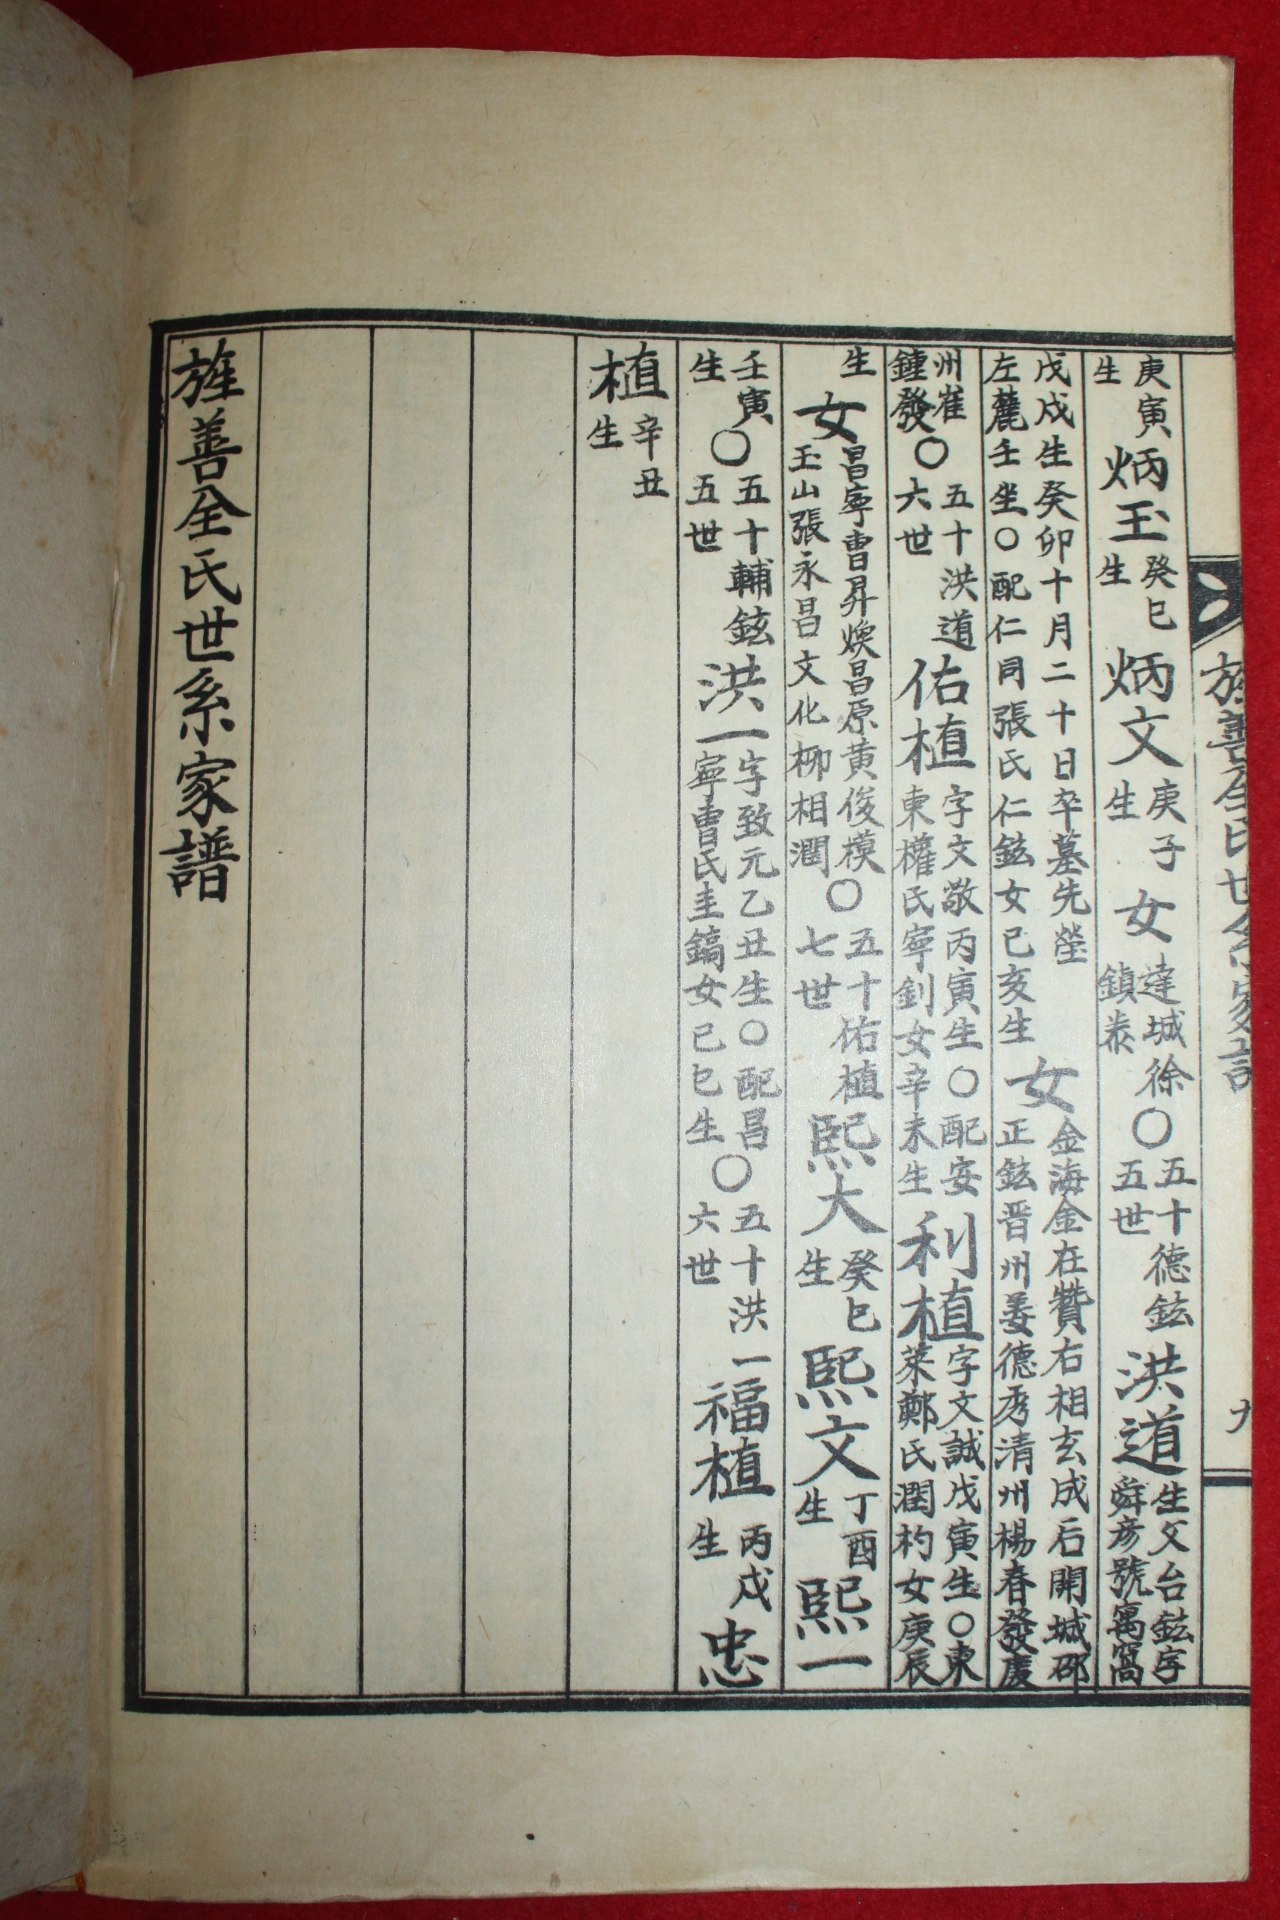 旌善全氏世系家譜
九
庚寅
生
炳玉
癸巳
生
炳文
庚子
生
女
達城徐
鎮泰
〇
五十德鉉
五世
洪道
生父台鉉字
舜彦號寓窩
戊戌生癸卯十月二十日卒墓先塋
左麓壬坐〇配仁同張氏仁鉉女己亥生
女
金海金在贊右相玄成后開城邵
正鉉晋州姜德秀清州楊春發慶
州崔
鍾發
〇
五十洪道
六世
佑植
字文敬丙寅生〇配安
東權氏寧釗女辛未生
利植
字文誠戊寅生〇東
萊鄭氏潤杓女庚辰
生
女
昌寧曺昇煥昌原黃俊模
玉山張永昌文化柳相潤
〇
五十佑植
七世
熙大
癸巳
生
熙文
丁酉
生
熙一
壬寅
生
〇
五十輔鉉
五世
洪一
字致元乙丑生〇配昌
寧曺氏圭鎬女己巳生
〇
五十洪一
六世
福植
丙戌
生
忠
植
辛丑
生
旌善全氏世系家譜